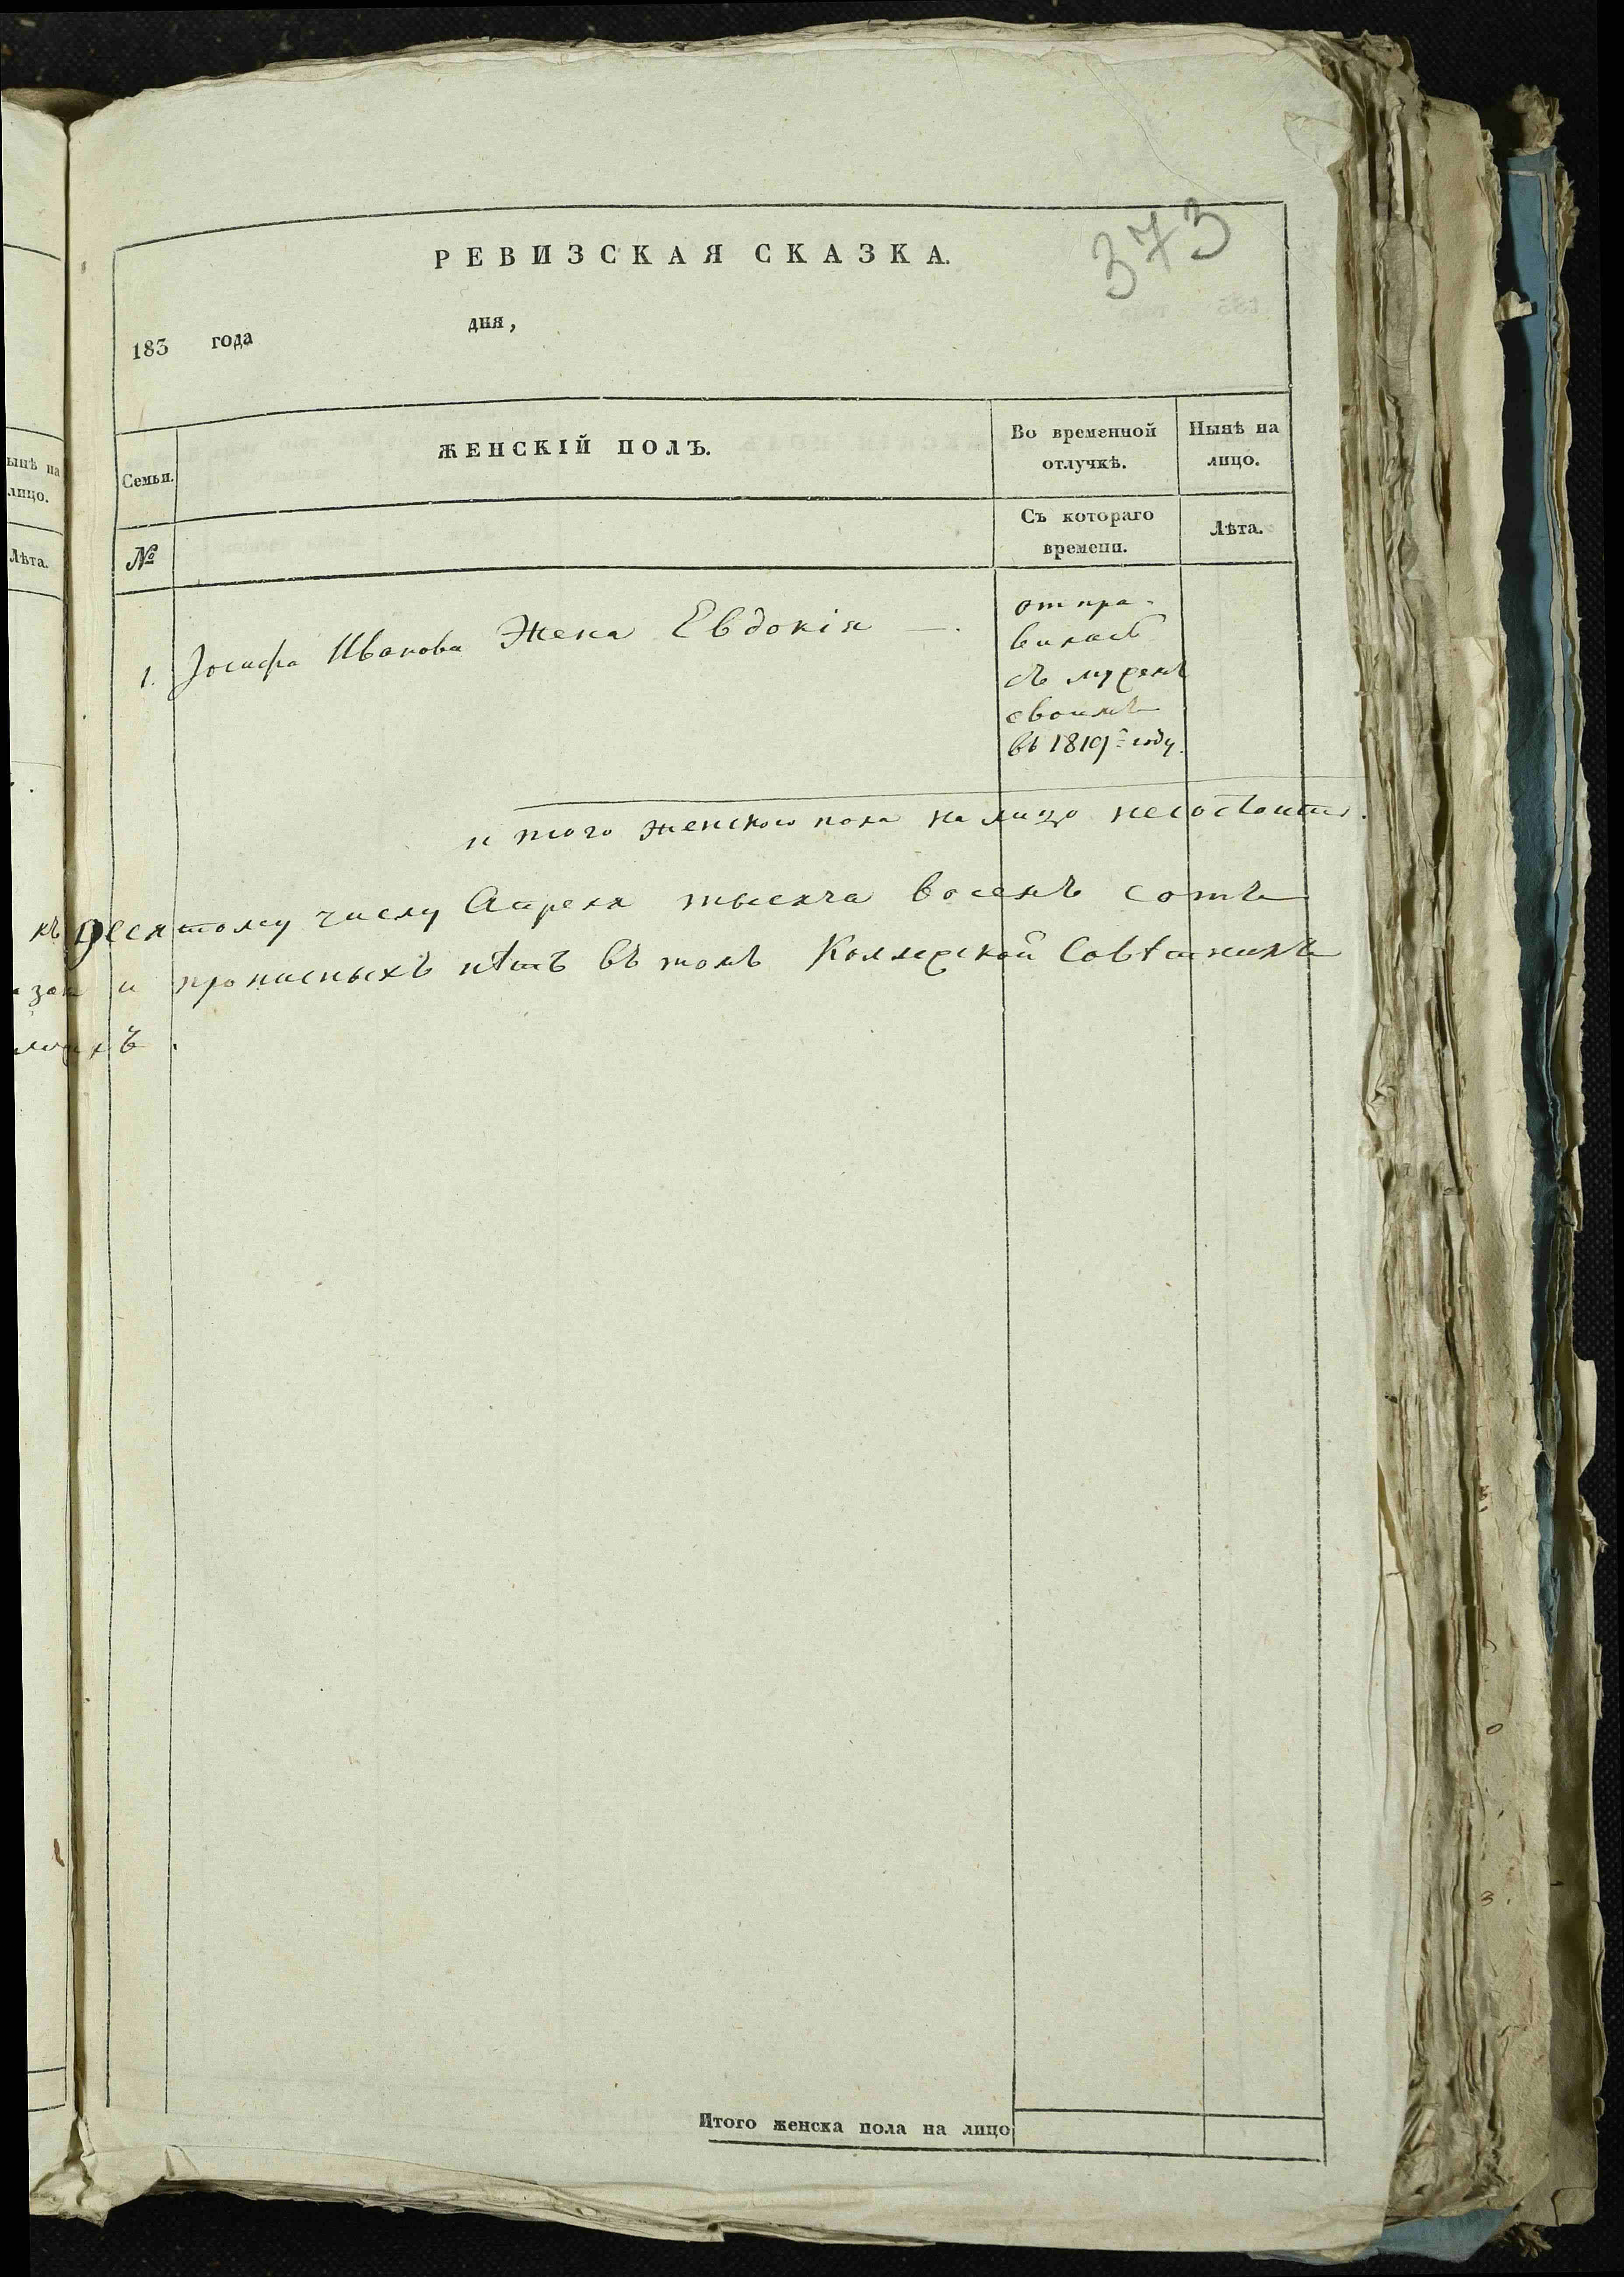 373
РЕВИЗСКАЯ СКАЗКА.
183 года дня,
ынѣ на
лицо.
Лѣта.
Семьи.
ЖЕНСКІЙ ПОЛЪ.
Во временной
отлучкѣ.
Нынѣ на
лицо.
№
Съ котораго
времени.
Лѣта.
1. Іосифа Иванова Жена Евдокія —.
отпра-
вилась
съ мужемъ
своимъ
въ 1819 году.
итого женского пола на лицо несостоитъ.
къ десятому числу Апреля тысяча восемъ сотъ
и прописныхъ нѣтъ въ томъ Коллежской Совѣтникъ
Итого женска пола на лицо